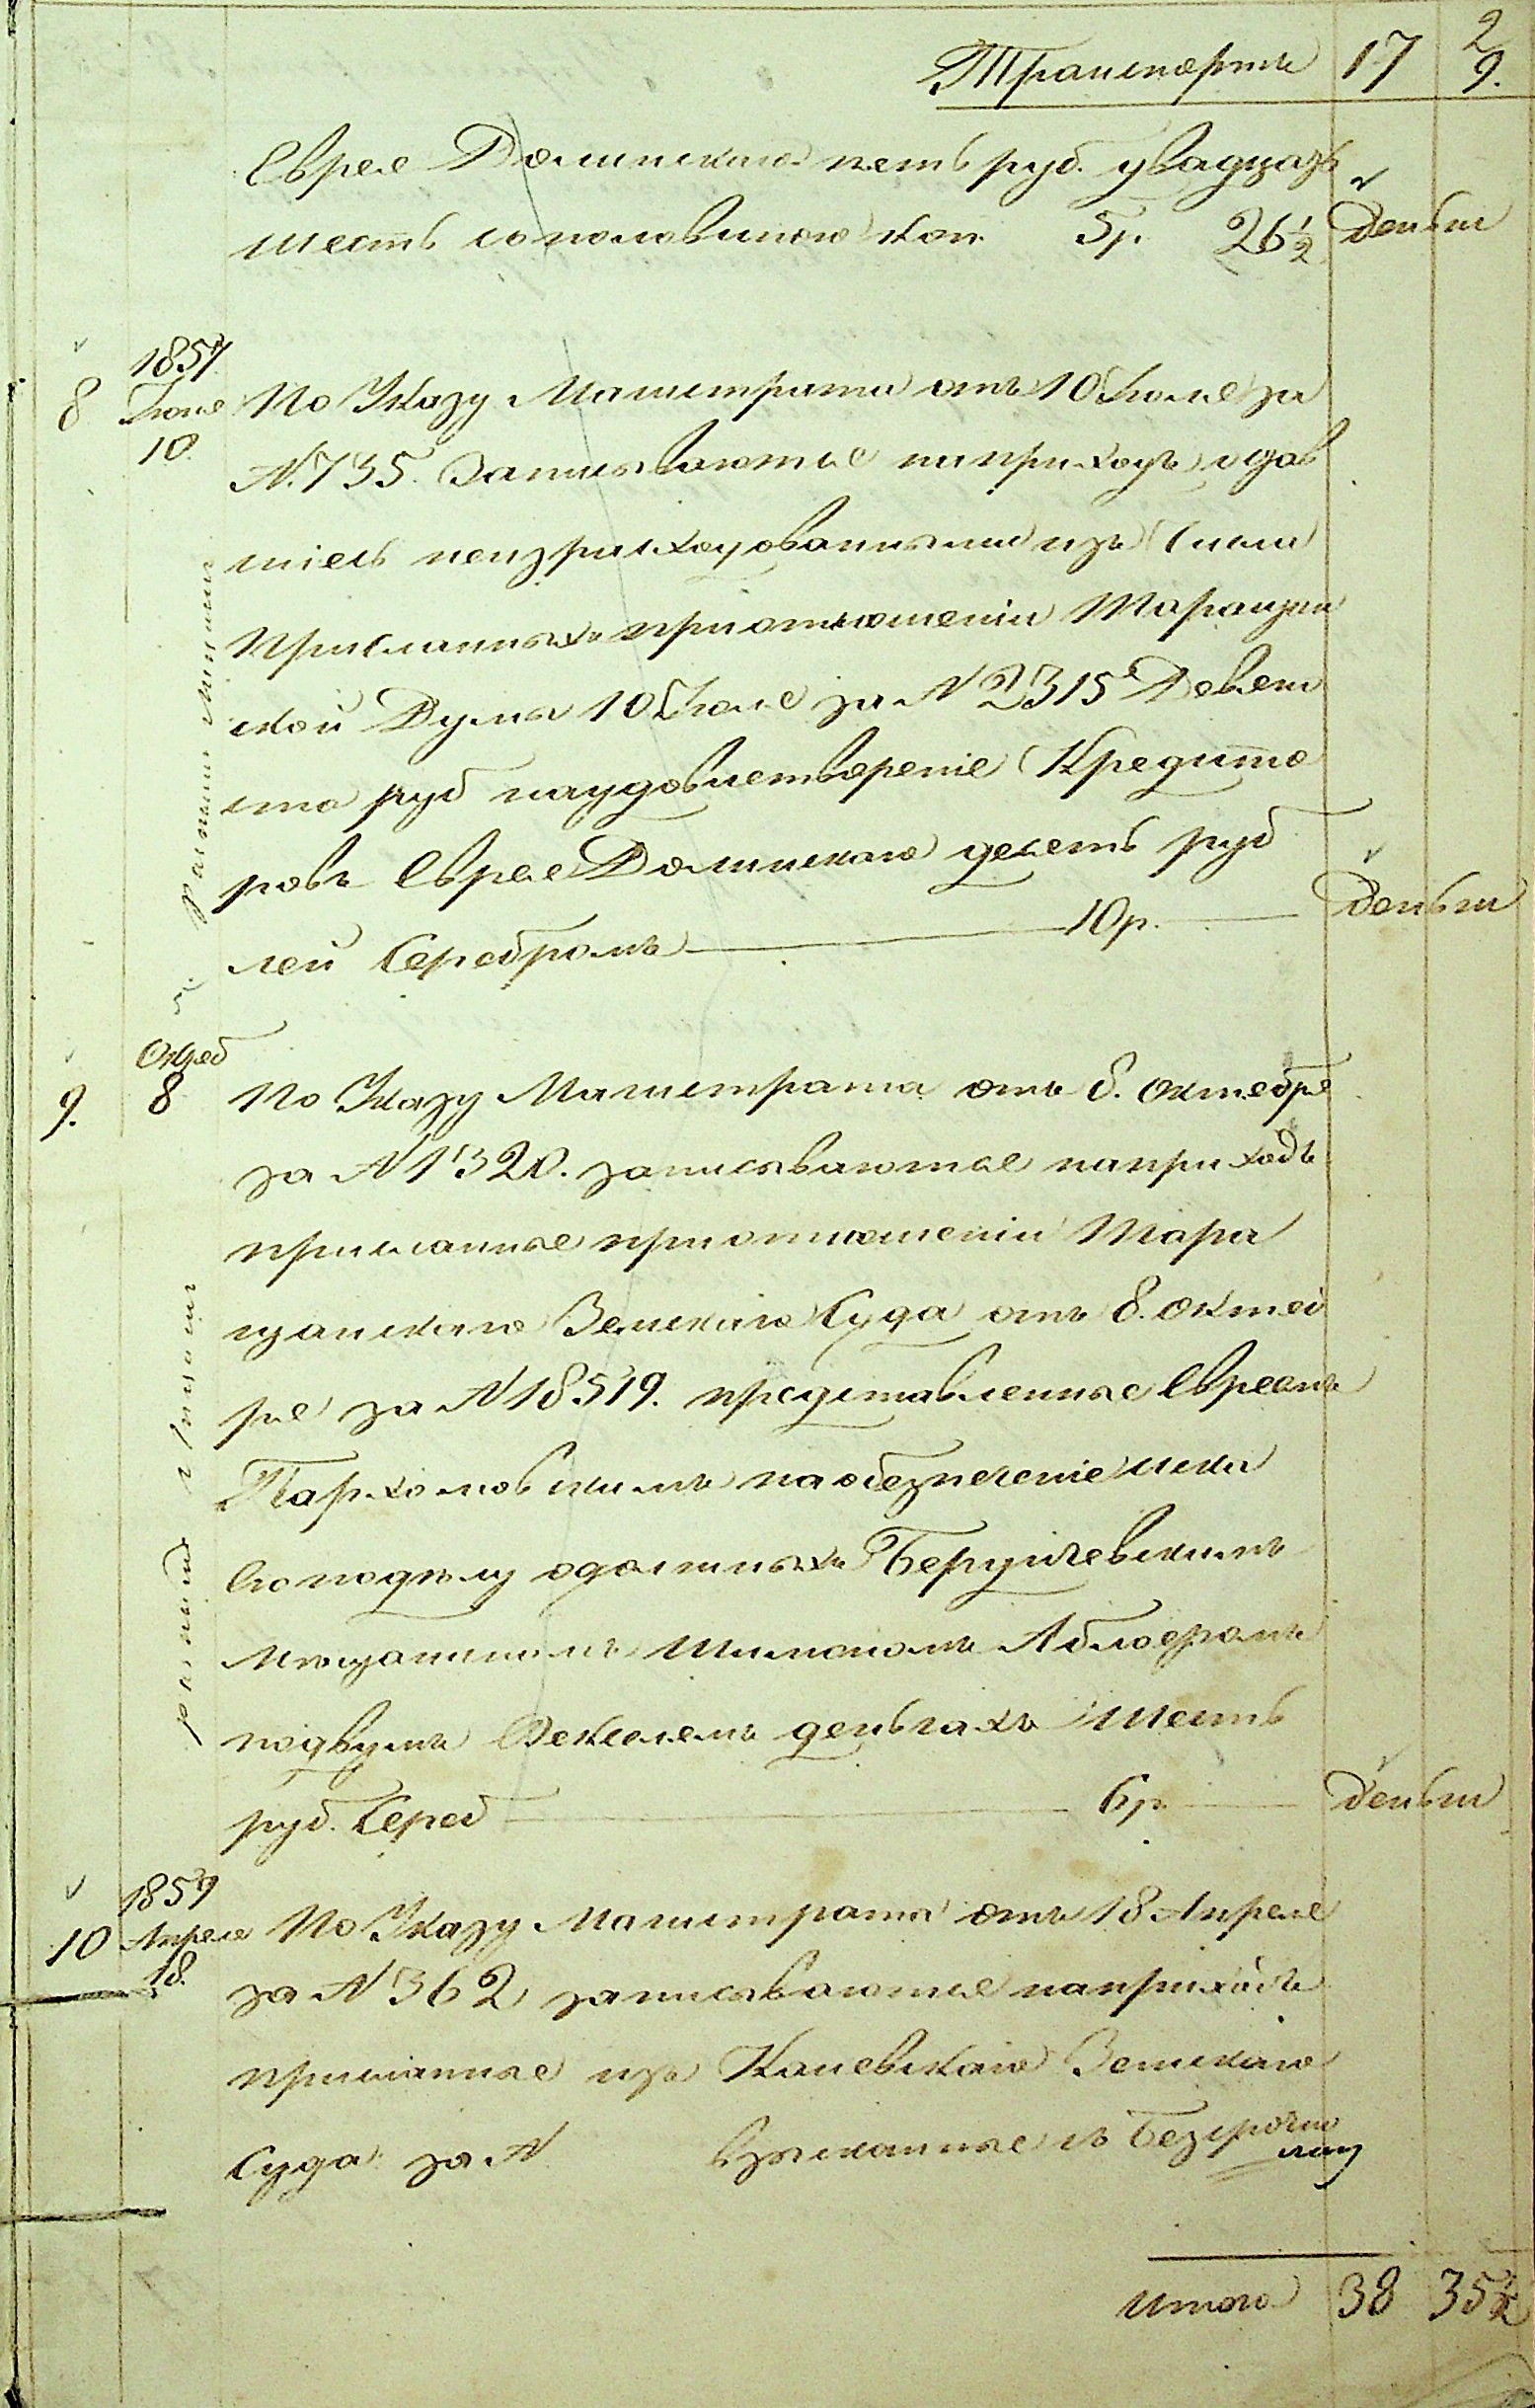 2
Транспортъ 17 9.
Еврея Долинскаго пять руб. двадцать
шесть съ половиною коп. 5 р. 26½ деньги
1857.
8 Іюля По Указу Магистрата отъ 10 Іюля за
10. N. 735. Записываются на приходъ остав
шіеся неизрасходованными изъ числа
присланныхъ при отношеніи Таращан
ской Думы 10 Іюля за N 2315 Девят
сто руб на удовлетвореніе Кредито
ровъ Еврея Долинскаго десять руб
лей Серебромъ 10 р. деньги
Октяб
9. 8 По Указу Магистрата отъ 8. Октября
за N 1320. записываются на приходъ
присланные при отношеніи Тара
щанскаго Земскаго Суда отъ 8. Октяб
ря за N 18519. представленные Евреемъ
Пархомовскимъ на обезпеченіе иска
его по дѣлу о должныхъ Бердичевскимъ
мѣщаниномъ Шимономъ
по двумъ Векселямъ деньгахъ шесть
руб. Сереб 6 р. деньги
1859
10 Апреля По Указу Магистрата отъ 18 Апреля
18. за N 362 записываются на приходъ
присланные изъ Каневскаго Земскаго
Суда за N взысканные съ
Итого 38 35½